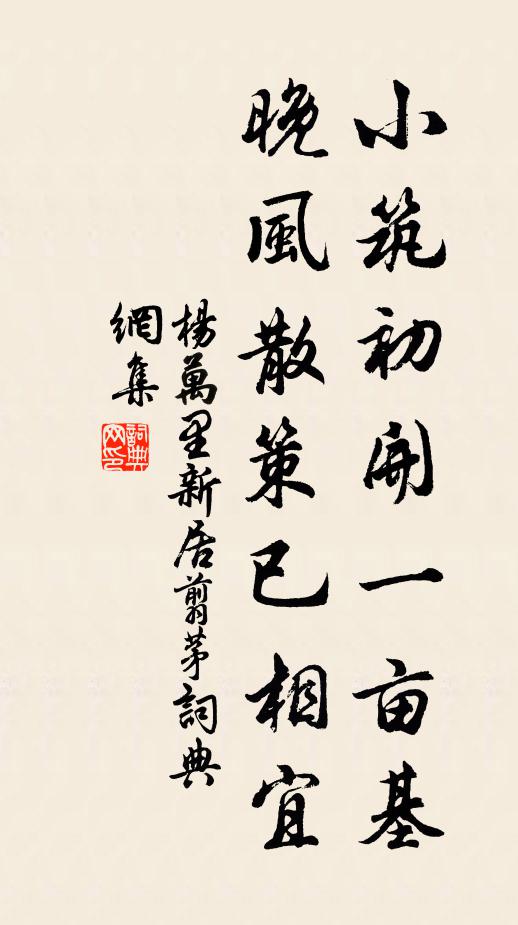 小筑初開一亩基
晚風散策已相宜
楊萬里新居翦茅詞典
網集
詞典
网印